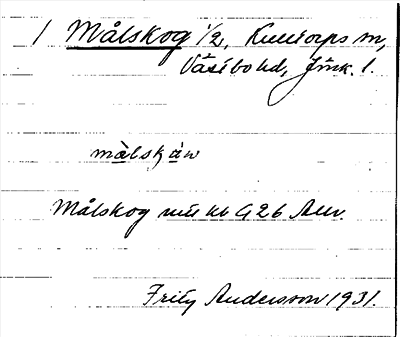 1 Målskog 1/2, Kulltorps sn,
Västbo hd, Jönk. l.
målskɷw
Målskog G 26 Anr.
Fritz Andersson 1931.